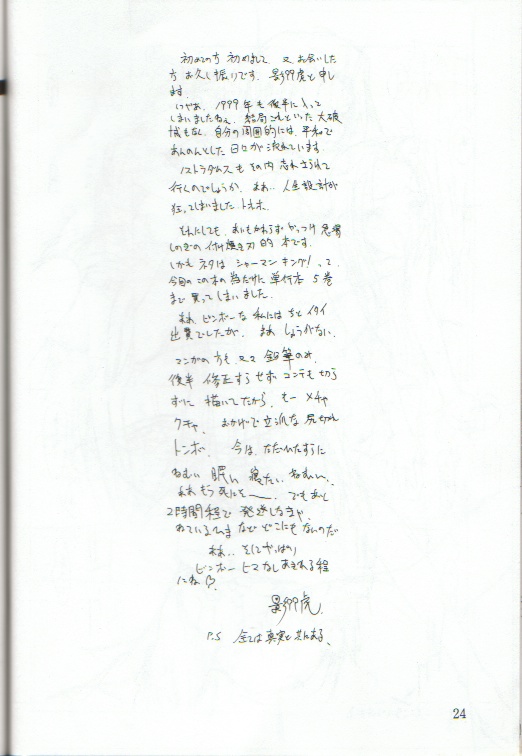 初めての方 初めまして 又 お会いした
方 お久し振りです。影郎虎と申し
ます。
いやあ、1999年も後半に入って
しまいましたねぇ。結局これといった大破
壊もなく、自分の周囲的には、平和で
あんのんとした日々が流れています。
ノストラダムスもその内 忘れ去られて
行くのでしょうか。まあ‥人生設計が
狂ってしまいましたトホホ。
それにしても、あいもかわらず
しのぎの 付け焼き刃的 本です。
しかも ネタは シャーマンキング!って。
今回の この本の為だけに 単行本 5巻
まで 買ってしまいました。
まあ、ビンボーな 私には ちとイタイ
出費でしたが、まあ しょうがない。
マンガの方も、又々 鉛筆のみ、
後半 修正すらせず コンテも切ら
ずに 描いてたから、もー メチャ
クチャ、おかげで立派な 尻切れ
トンボ、今は、ただひたすらに
ねむい 眠い 寝たい ねむい、
ああ もう 死にそ〜、でも あと
2時間程で 発送しなきゃ、
ねているひま など どこにもないのだ
ああ‥ そしてやっぱり
ビンボー ヒマなし あきれる程
にね♡
影郎虎
P.S 全ては 真実と共にある、
24